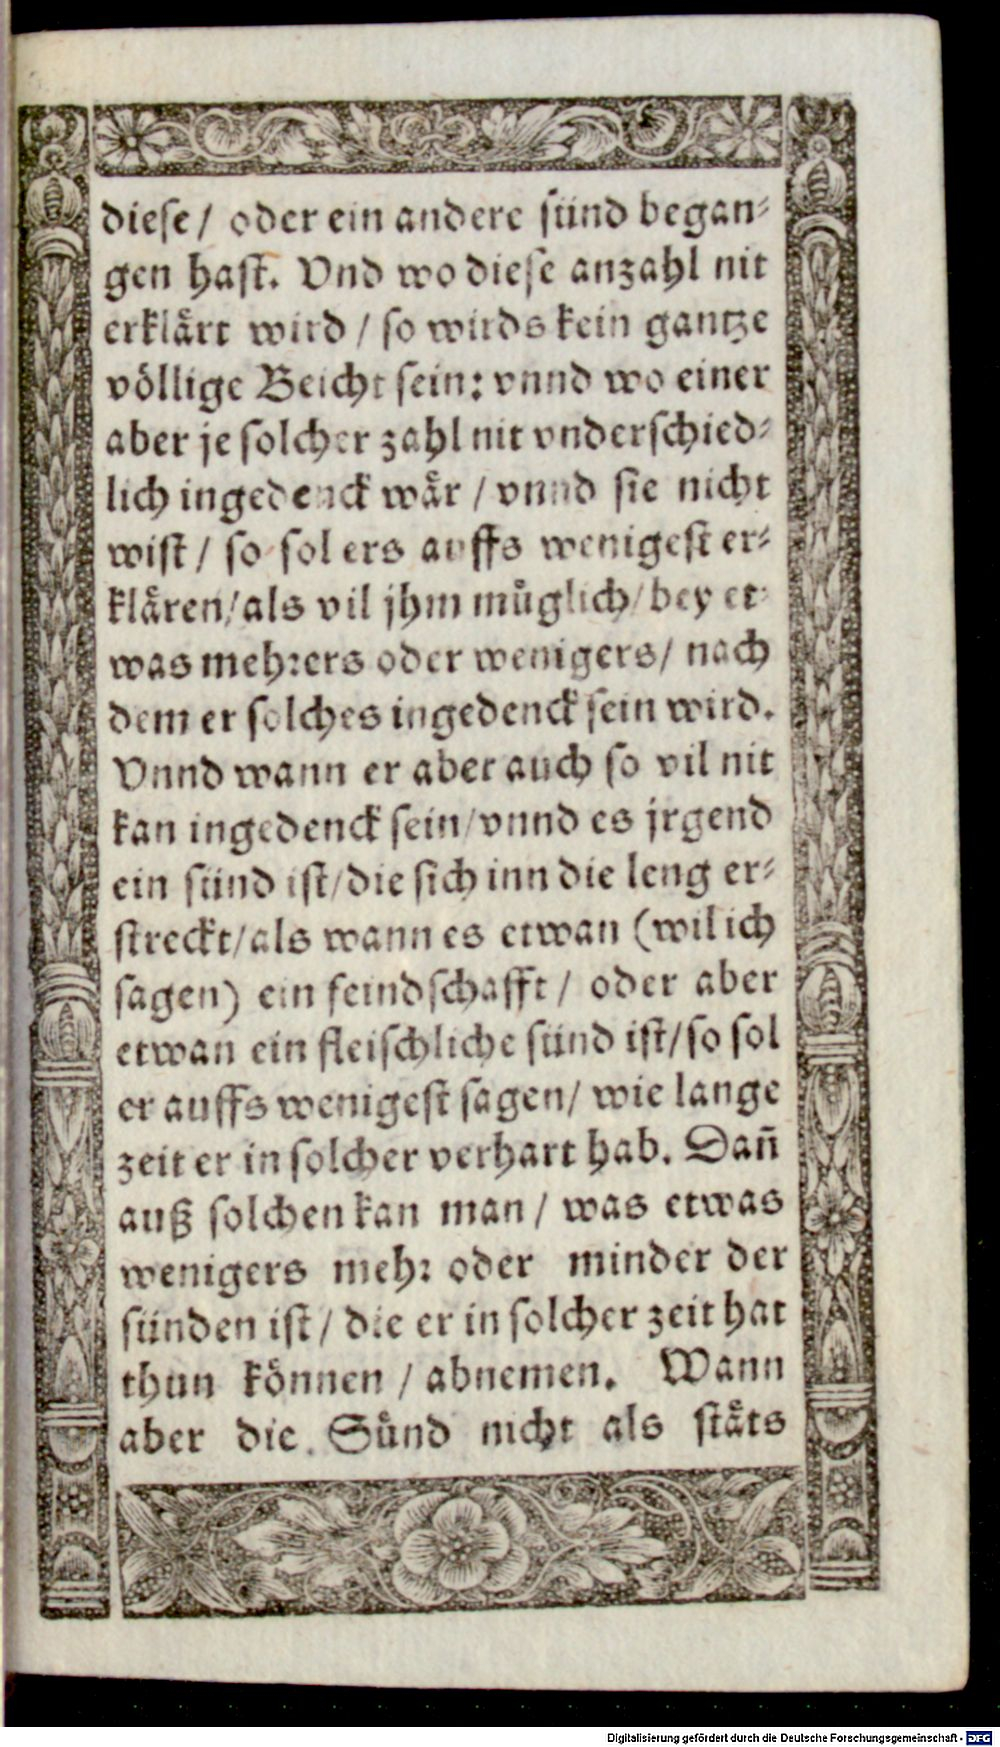 diese/ oder ein andere sünd began⸗
gen hast. Vnd wo diese anzahl nit
erklärt wird / so wirds kein gantze
völlige Beicht sein: vnnd wo einer
aber je solcher zahl nit vnderschied⸗
lich ingedenck wär / vnnd sie nicht
wist / so sol ers auffs wenigest er⸗
klären/ als vil jhm müglich/ bey et⸗
was mehrers oder wenigers/ nach
dem er solches ingedenck sein wird.
Vnnd wann er aber auch so vil nit
kan ingedenck sein/ vnnd es jrgend
ein sünd ist/ die sich inn die leng er⸗
streckt/ als wann es etwan (wil ich
sagen) ein feindschafft / oder aber
etwan ein fleischliche sünd ist/ so sol
er auffs wenigest sagen/ wie lange
zeit er in solcher verhart hab. Dañ
auß solchen kan man / was etwas
wenigers mehr oder minder der
sünden ist / die er in solcher zeit hat
thun können / abnemen. Wann
aber die Sünd nicht als stäts
Digitalisierung gefördert durch die Deutsche Forschungsgemeinschaft - DFG